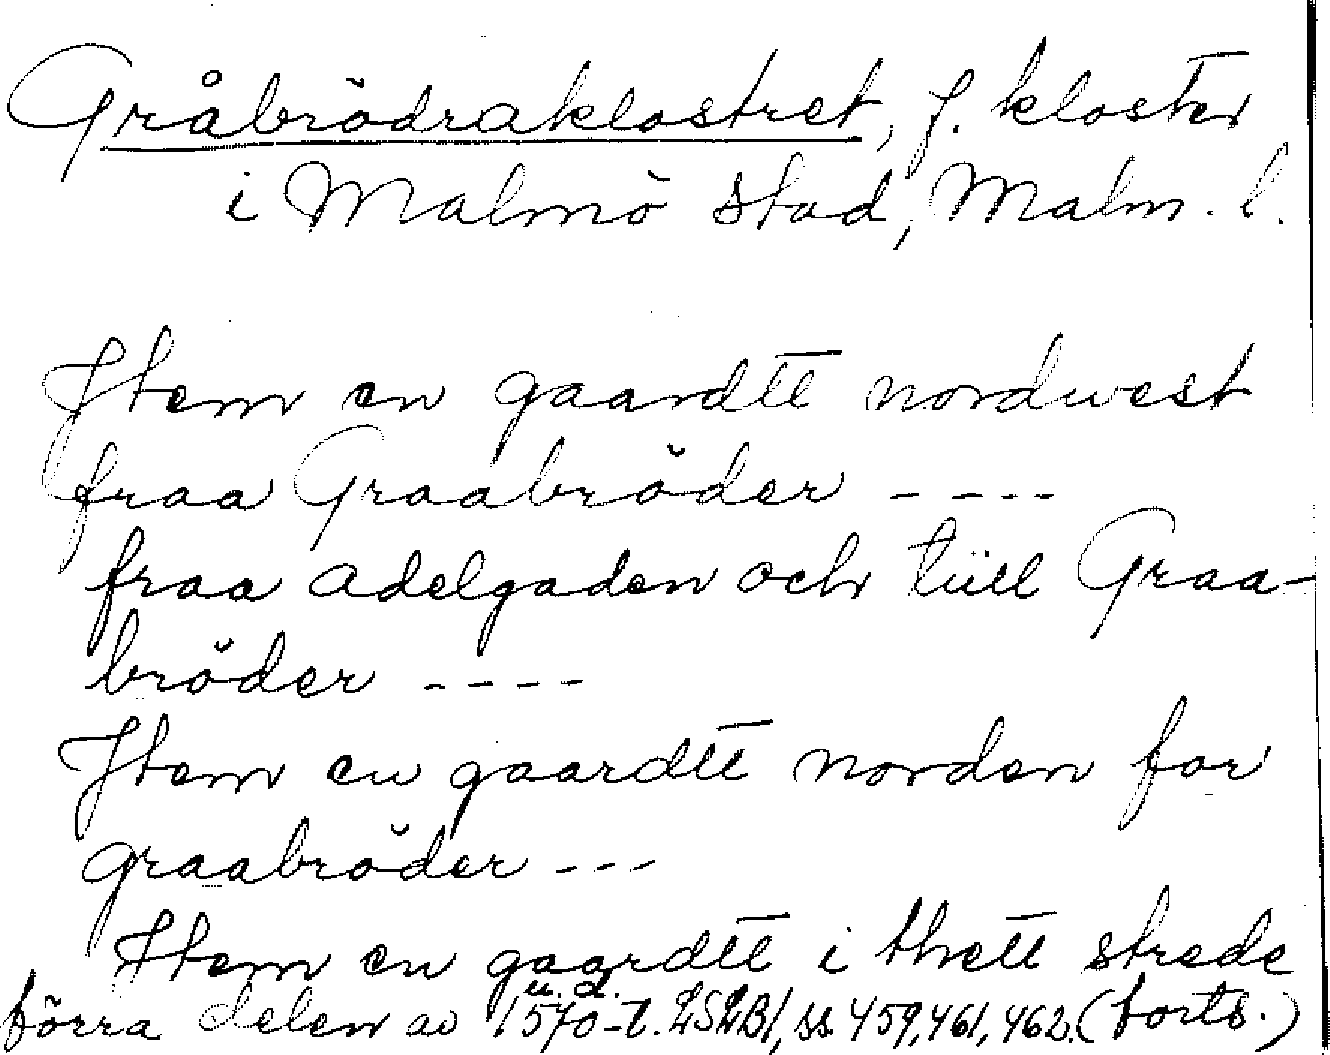 Gråbrödraklostret, f. kloster
i Malmö stad, Malm. l.
Item en gaardtt nordwest
fraa Graabröder - ---
fraa adelgaden och tüll Graa-
bröder ----
Item en gaardtt norden for
graabröder ---
Item en gaardtt i thett strede
u. d.
förra delen av 1570-t. LSLB1, ss. 459, 461, 462. (forts.)